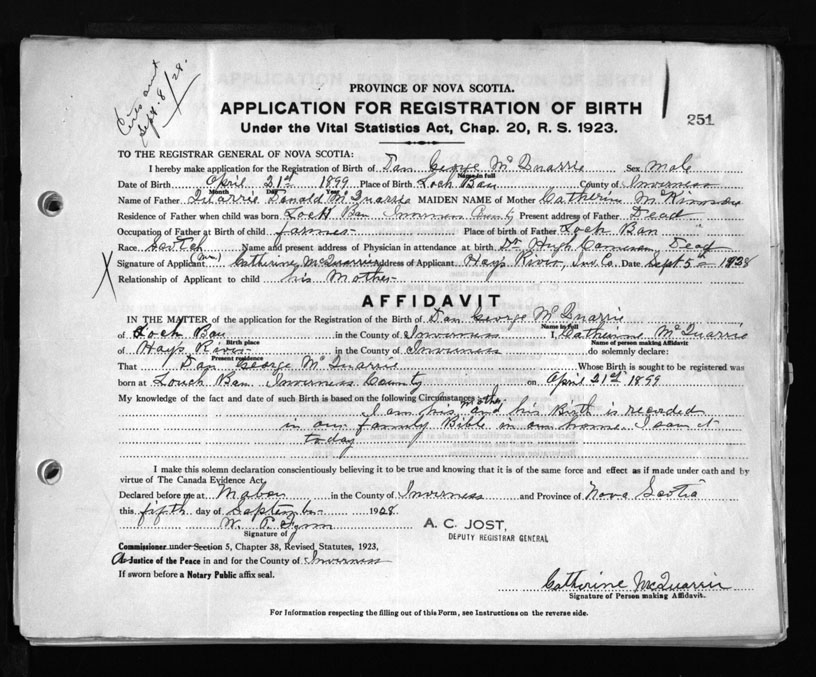 Sept. 8/28.
PROVINCE OF NOVA SCOTIA.
APPLICATION FOR REGISTRATION OF BIRTH
Under the Vital Statistics Act, Chap. 20, R. S. 1923.
251
TO THE REGISTRAR GENERAL OF NOVA SCOTIA:
I hereby make application for the Registration of Birth of Dan George McQuarrie Sex Male
Name in full
Date of Birth April 21st 1899 Place of Birth Loch Ban County of Inverness
Month Day Year
Name of Father Donald McQuarrie MAIDEN NAME of Mother Catherine McKinnon
Residence of Father when child was born Loch Ban Inverness County Present address of Father Dead
Occupation of Father at Birth of child farmer Place of birth of Father Loch Ban "
Race Scotch Name and present address of Physician in attendance at birth Dr Hugh Cameron, Dead
Signature of Applicant (Mrs) Catherine McQuarrie Address of Applicant Hays River, Inv. Co. Date Sept 5th 1928
X Relationship of Applicant to child his Mother
AFFIDAVIT
IN THE MATTER of the application for the Registration of the Birth of Dan George McQuarrie
Name in full
of Loch Ban in the County of Inverness I, Catherine McQuarrie
Birth place Name of person making Affidavit
of Hays River in the County of Inverness do solemnly declare:
Present residence
That Dan George McQuarrie Whose Birth is sought to be registered was
born at Louch Ban Inverness County on April 21st 1899
My knowledge of the fact and date of such Birth is based on the following Circumstances
I am his mother and his Birth is recorded
in our family Bible in our home. I saw it
today
I make this solemn declaration conscientiously believing it to be true and knowing that it is of the same force and effect as if made under oath and by
virtue of The Canada Evidence Act.
Declared before me at Mabou in the County of Inverness and Province of Nova Scotia
this fifth day of September 1928.
W. P. Flynn
Signature of
A. C. JOST,
DEPUTY REGISTRAR GENERAL
Commissioner under Section 5, Chapter 38, Revised Statutes, 1923,
A Justice of the Peace in and for the County of Inverness
If sworn before a Notary Public affix seal.
Catherine McQuarrie
Signature of Person making Affidavit.
For Information respecting the filling out of this Form, see Instructions on the reverse side.